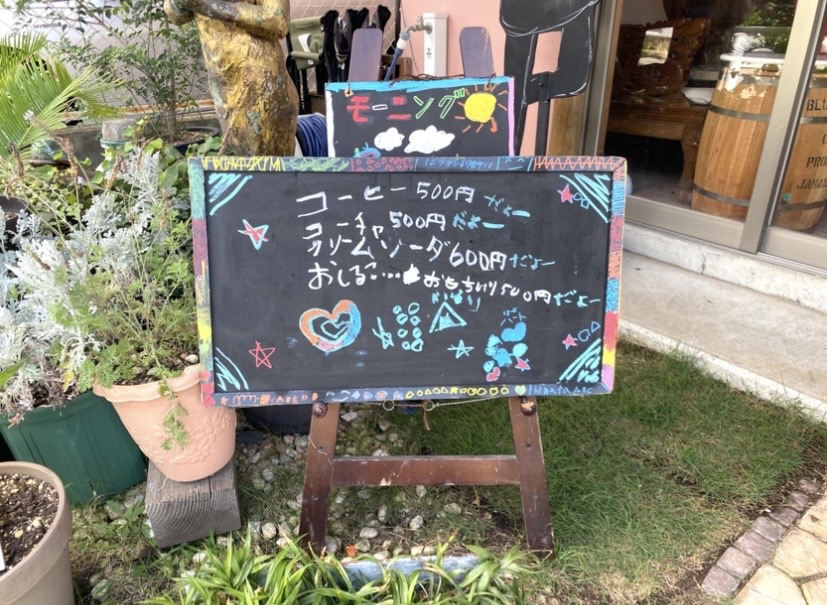 モーニング
コーヒー500円だよー
コーチャ500円だよー
クリームソーダ600円だよー
おしるこ...おもちいり500円だよー